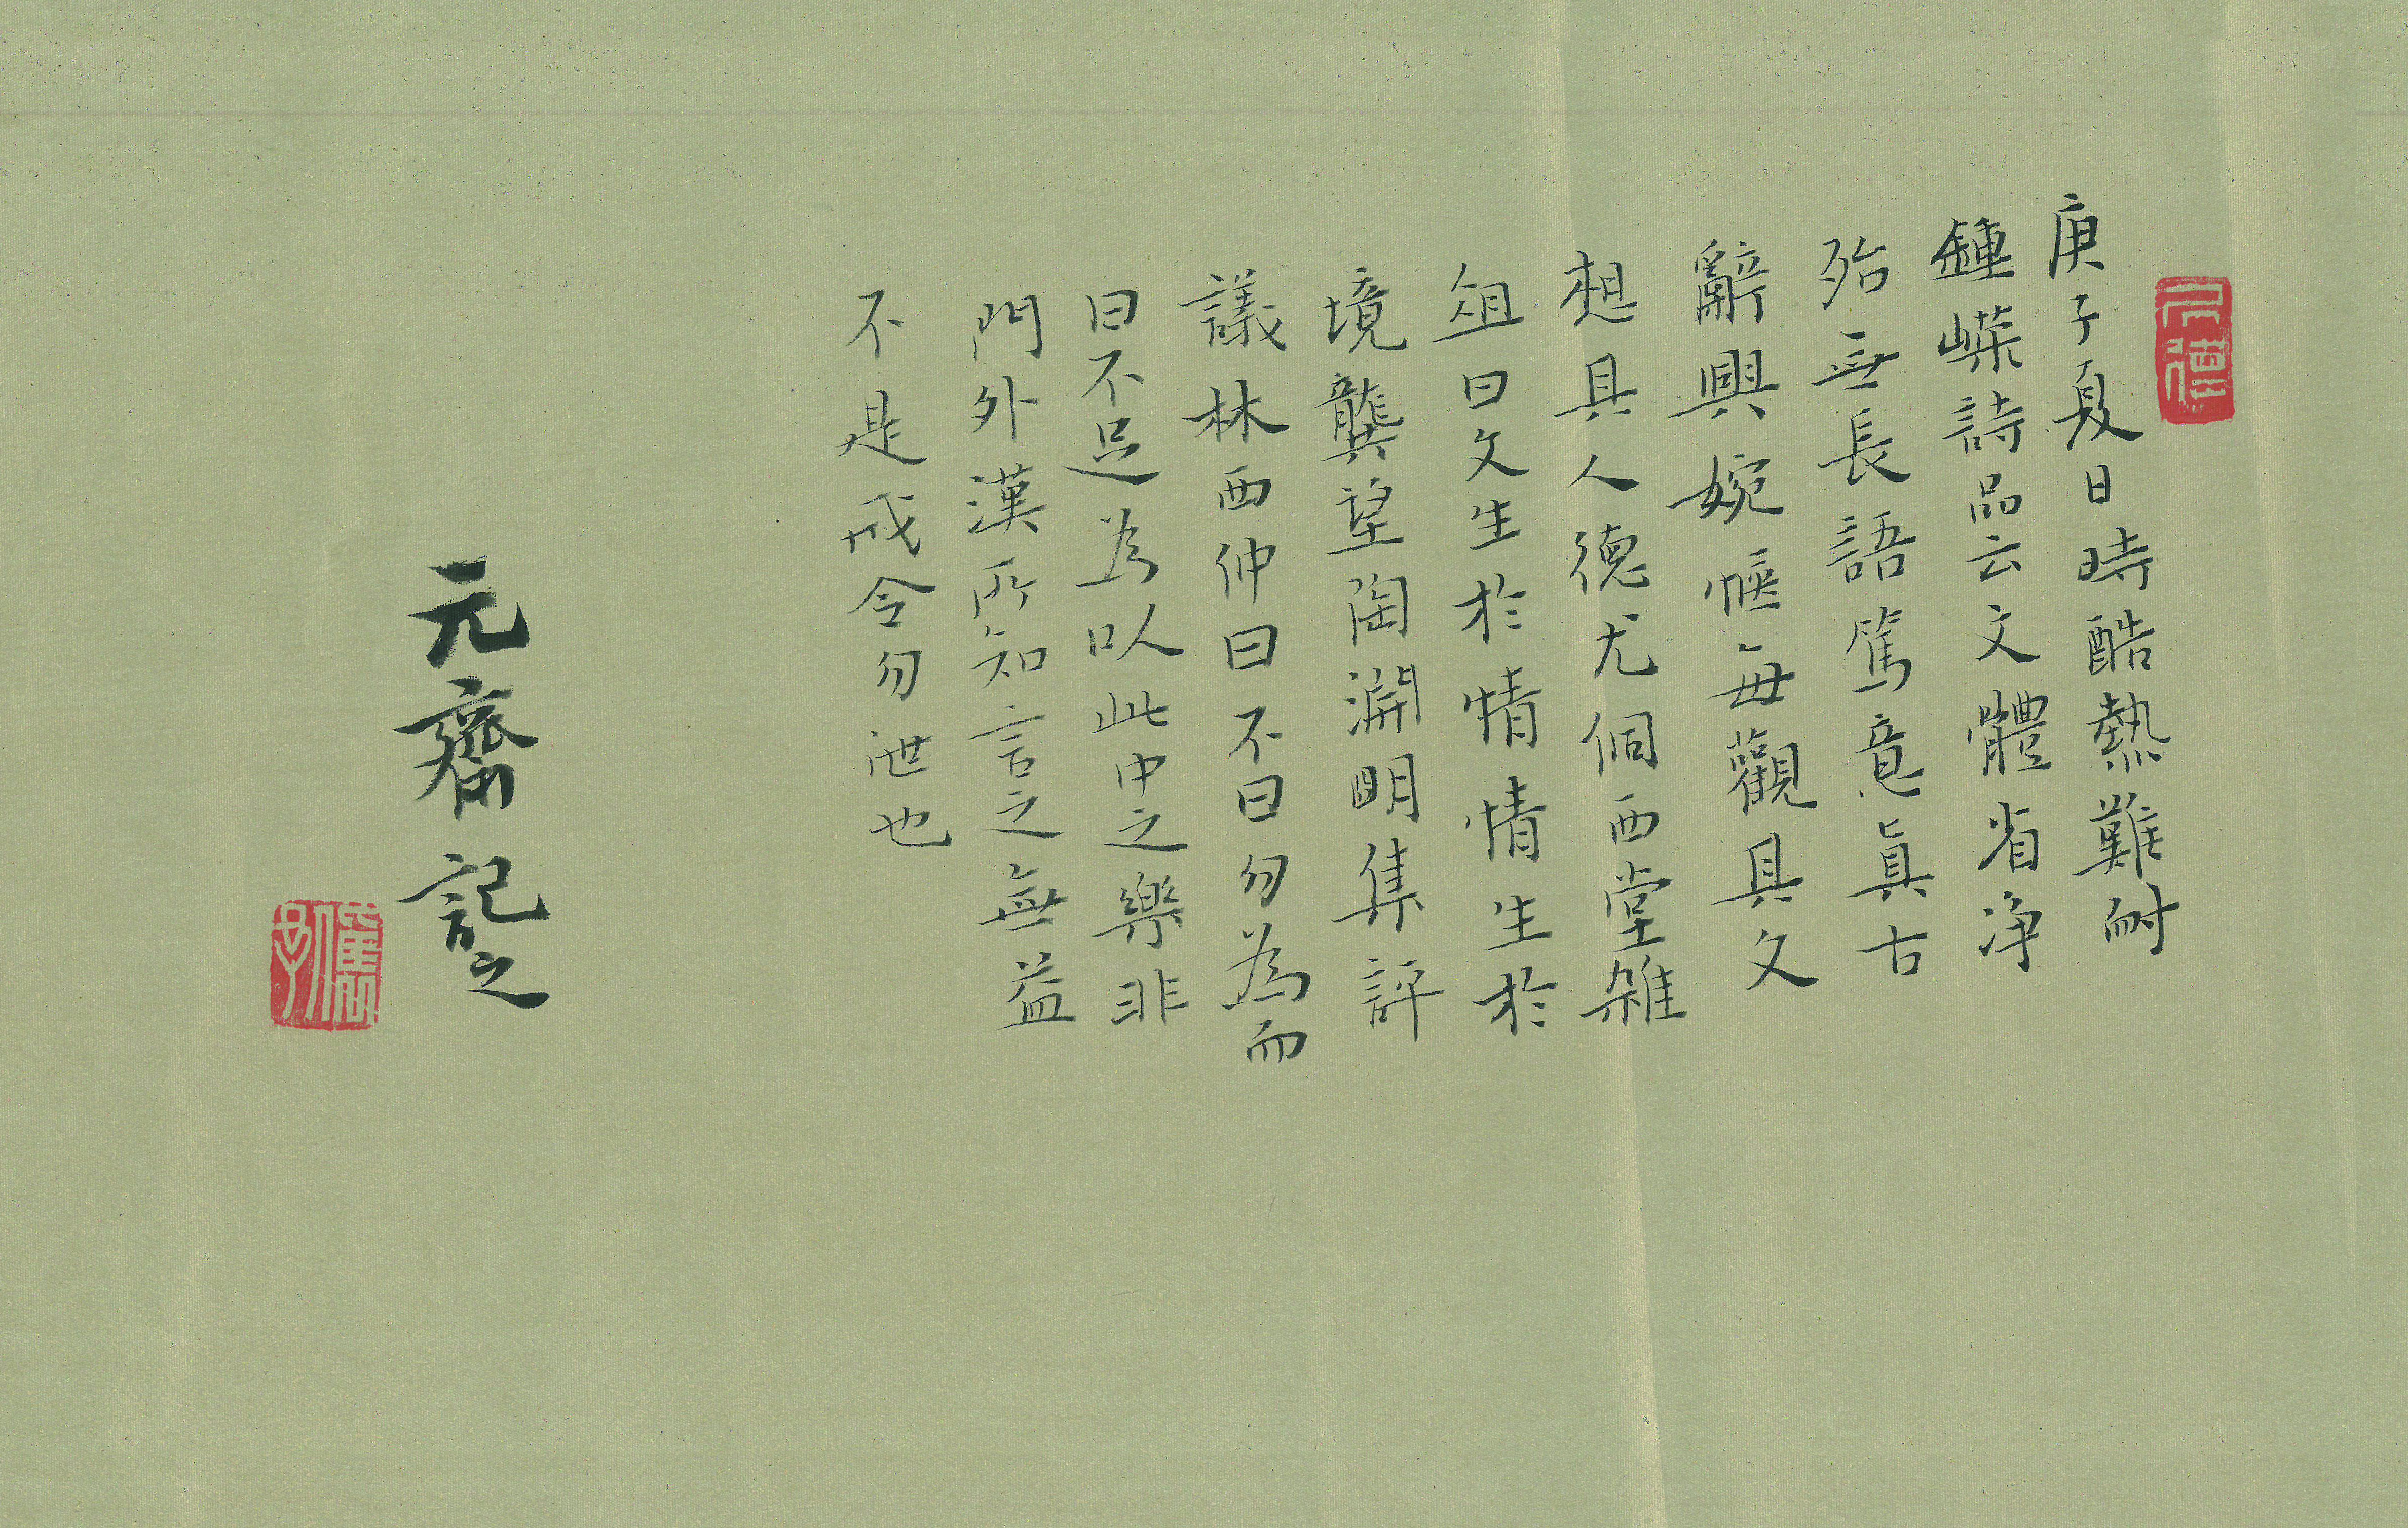 庚子夏日時酷熱難耐
鍾嶸詩品云文體省淨
殆無長語篤意真古
辭興婉愜每觀其文
想其人德尤侗西堂雜
俎曰文生於情情生於
境龔望陶淵明集評
議林西仲曰不曰勿為而
曰不足為以此中之樂非
門外漢所知言之無益
不是戒令勿泄也
元齋記之